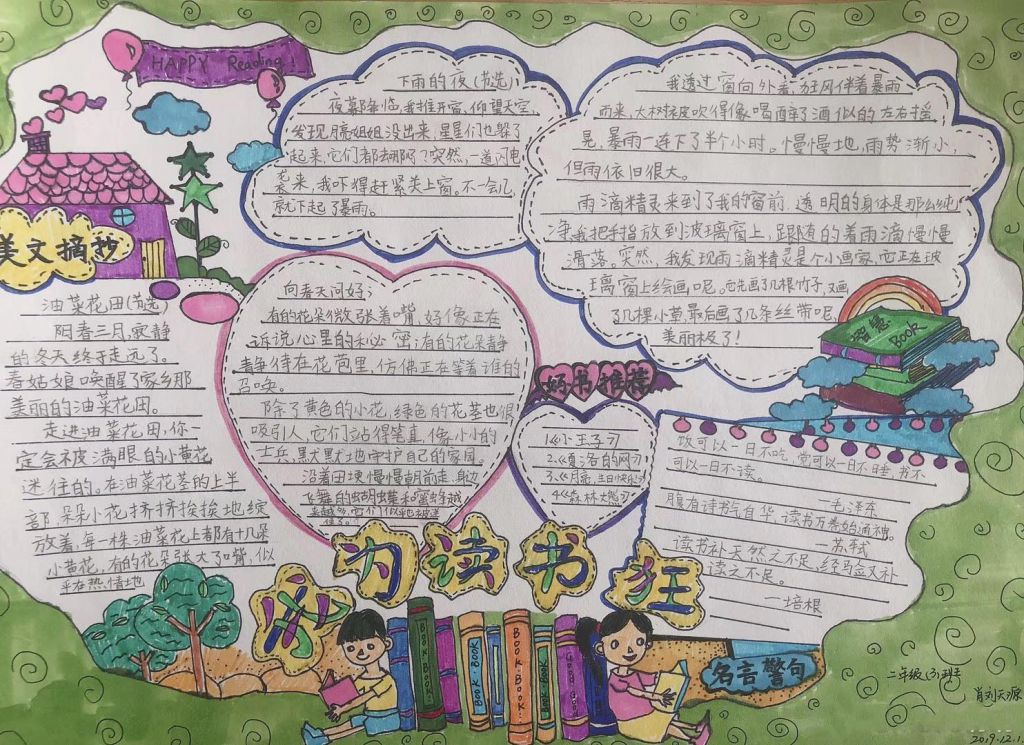 HAPPY Reading!
美文摘抄
下雨的夜(节选)
夜幕降临,我推开窗,仰望天空,
发现月亮姐姐没出来,星星们也躲了
起来,它们都去哪了?突然,一道闪电
袭来,我吓得赶紧关上窗。不一会儿,
就下起了暴雨。
我透过窗向外看,狂风伴着暴雨
而来,大树被吹得像喝醉了酒似的左右摇
晃,暴雨一连下了半个小时。慢慢地,雨势渐小,
但雨依旧很大。
雨滴精灵来到了我的窗前,透明的身体是那么纯
净,我把手指放到玻璃窗上,跟随的着雨滴慢慢
滑落。突然,我发现雨滴精灵是个小画家,它正在玻
璃窗上绘画呢。它先画了几根竹子,又画
了几棵小草,最后画了几条丝带呢,
美丽极了!
油菜花田(节选)
阳春三月,寂静
的冬天终于走远了。
春姑娘唤醒了家乡那
美丽的油菜花田。
走进油菜花田,你一
定会被满眼的小黄花
迷住的。在油菜花茎的上半
部,朵朵小花挤挤挨挨地绽
放着,每一株油菜花上都有十几朵
小黄花,有的花朵张大了嘴,似
乎在热情地
向春天问好;
有的花朵微张着嘴,好像正在
诉说心里的秘密;有的花朵静
静待在花苞里,仿佛正在等着谁的
召唤。
除了黄色的小花,绿色的花茎也很
吸引人,它们站得笔直,像小小的
士兵,默默地守护自己的家园。
沿着田埂慢慢朝前走,身边
飞舞的蝴蝶和蜜蜂越
来越多,它们似乎也被迷
住了。
好书推荐
1.《小王子》
2.《夏洛的网》
3.《月亮,生日快乐》
4.《森林大熊》
智慧
BOOK
饭可以一日不吃,觉可以一日不睡,书不
可以一日不读。
—毛泽东
腹有诗书气自华,读书万卷始通神。
—苏轼
读书补天然之不足,经验又补
读之不足。
—培根
名言警句
我为读书狂
BOOK·BOOK
BOOK·BOOK
BOOK·BOOK
二年级(3)班
肖刘天源
2019.12.1